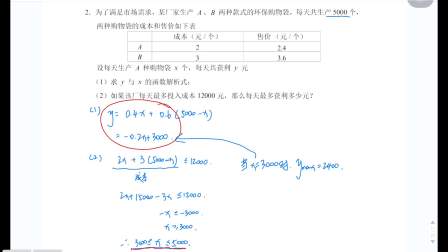 2. 为了满足市场需求,某厂家生产 A、B 两种款式的环保购物袋,每天共生产 5000 个,
两种购物袋的成本和售价如下表
成本（元/个） 售价（元/个）
A 2 2.4
B 3 3.6
设每天生产 A 种购物袋 x 个,每天共获利 y 元
（1）求 y 与 x 的函数解析式;
（2）如果该厂每天最多投入成本 12000 元,那么每天最多获利多少元?
(1) y = 0.4x + 0.6(5000-x)
= -0.2x+3000
(2) 2x + 3(5000-x) ≤ 12000 当x=3000时, ymax=2400
2x+15000-3x ≤12000
-x ≤ -3000
x ≥ 3000
∴ 3000 ≤ x ≤ 5000